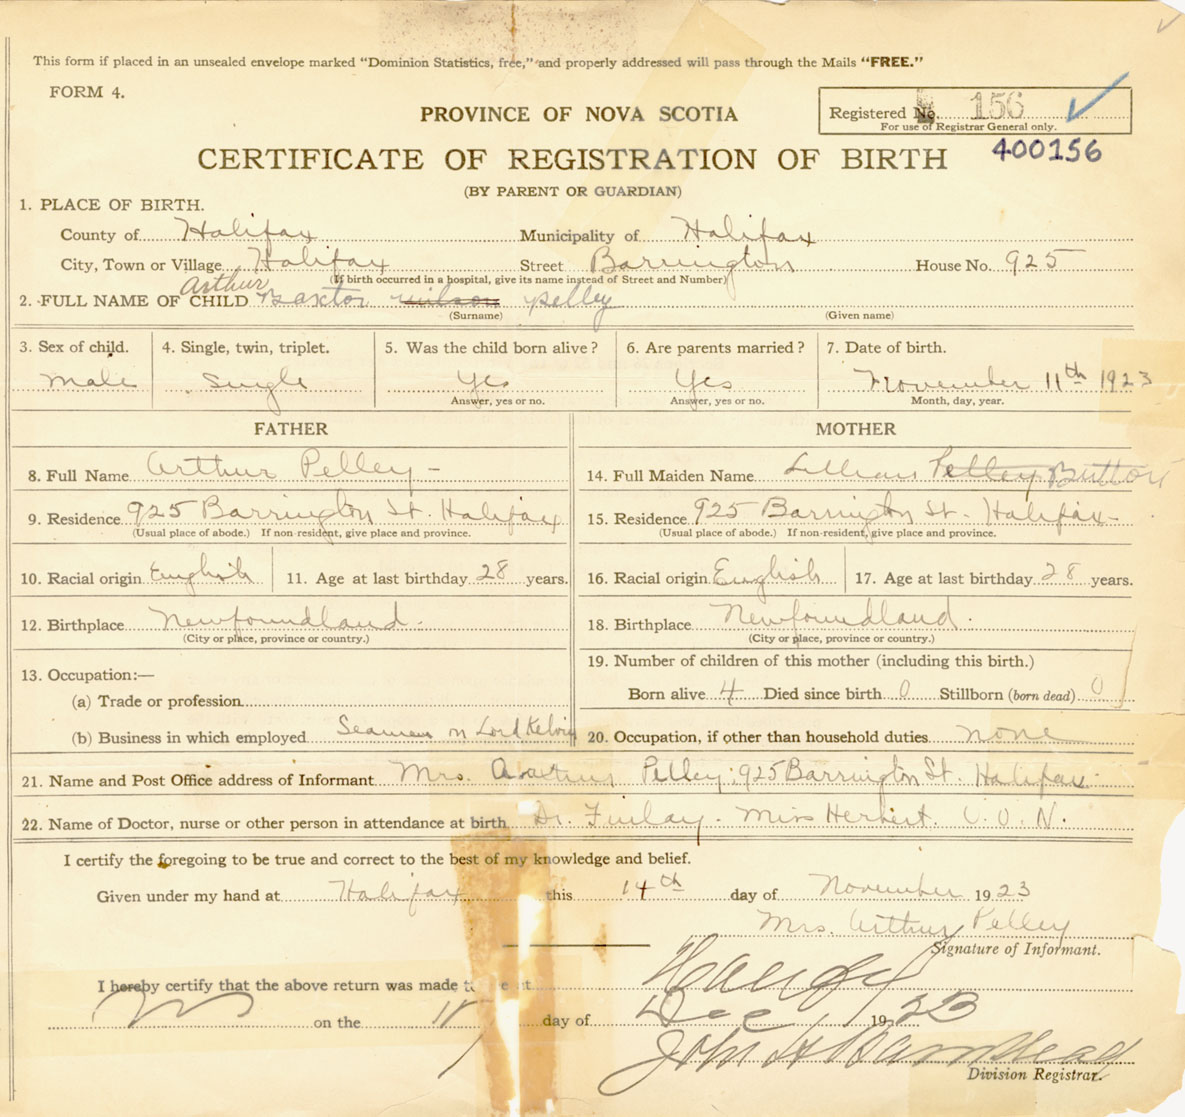 This form if placed in an unsealed envelope marked "Dominion Statistics, free," and properly addressed will pass through the Mails "FREE."
FORM 4.
PROVINCE OF NOVA SCOTIA
Registered No. 156
For use of Registrar General only.
CERTIFICATE OF REGISTRATION OF BIRTH 400156
(BY PARENT OR GUARDIAN)
1. PLACE OF BIRTH.
County of Halifax Municipality of Halifax
City, Town or Village Halifax Street Barrington House No. 925
(If birth occurred in a hospital, give its name instead of Street and Number)
Arthur
2. FULL NAME OF CHILD Baxter Wilson Pelley
(Surname) (Given name)
3. Sex of child. 4. Single, twin, triplet. 5. Was the child born alive? 6. Are parents married? 7. Date of birth.
Male Single Yes Yes November 11th 1923
Answer, yes or no. Answer, yes or no. Month, day, year.
FATHER MOTHER
8. Full Name Arthur Pelley - 14. Full Maiden Name Lillian Pelley Button
9. Residence 925 Barrington St. Halifax 15. Residence 925 Barrington St. Halifax
(Usual place of abode.) If non-resident, give place and province. (Usual place of abode.) If non-resident, give place and province.
10. Racial origin English 11. Age at last birthday 28 years. 16. Racial origin English 17. Age at last birthday 28 years.
12. Birthplace Newfoundland. 18. Birthplace Newfoundland.
(City or place, province or country.) (City or place, province or country.)
13. Occupation:— 19. Number of children of this mother (including this birth.)
(a) Trade or profession Born alive 4 Died since birth 0 Stillborn (born dead) 0
(b) Business in which employed Seaman on Lord Kelvin 20. Occupation, if other than household duties none
21. Name and Post Office address of Informant Mrs. Arthur Pelley, 925 Barrington St. Halifax
22. Name of Doctor, nurse or other person in attendance at birth Dr. Finlay. Miss Herbert. V.O.N.
I certify the foregoing to be true and correct to the best of my knowledge and belief.
Given under my hand at Halifax this 14th day of November 1923
Mrs. Arthur Pelley
Signature of Informant.
I hereby certify that the above return was made to me at Halifax
on the day of Dec 1923
John H Barnstead
Division Registrar.